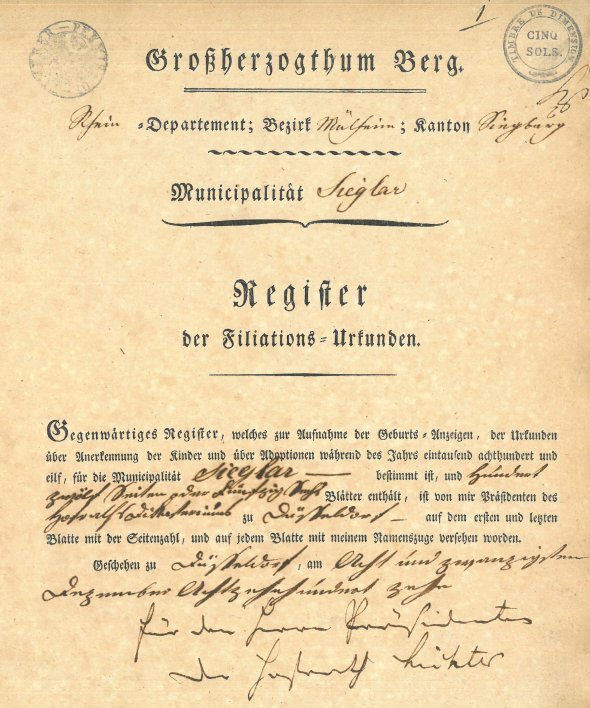 1
TIMBRE DE DIMENSION
CINQ
SOLS.
Großherzogthum Berg.
Rhein =Departement; Bezirk Mülheim; Kanton Siegburg
Municipalität Sieglar
Register
der Filiations=Urkunden.
Gegenwärtiges Register, welches zur Aufnahme der Geburts=Anzeigen, der Urkunden
über Anerkennung der Kinder und über Adoptionen während des Jahrs eintausend achthundert und
eilf, für die Municipalität Sieglar bestimmt ist, und Hundert
zwölf Seiten oder Fünfzig Sechs Blätter enthält, ist von mir Präsidenten des
Hofraths Dikasteriums zu Düsseldorf auf dem ersten und letzten
Blatte mit der Seitenzahl, und auf jedem Blatte mit meinem Namenszuge versehen worden.
Geschehen zu Düsseldorf, am Acht und zwanzigsten
Dezember Achtzehnhundert zehn
für den Herrn Präsidenten
Der Hofrath